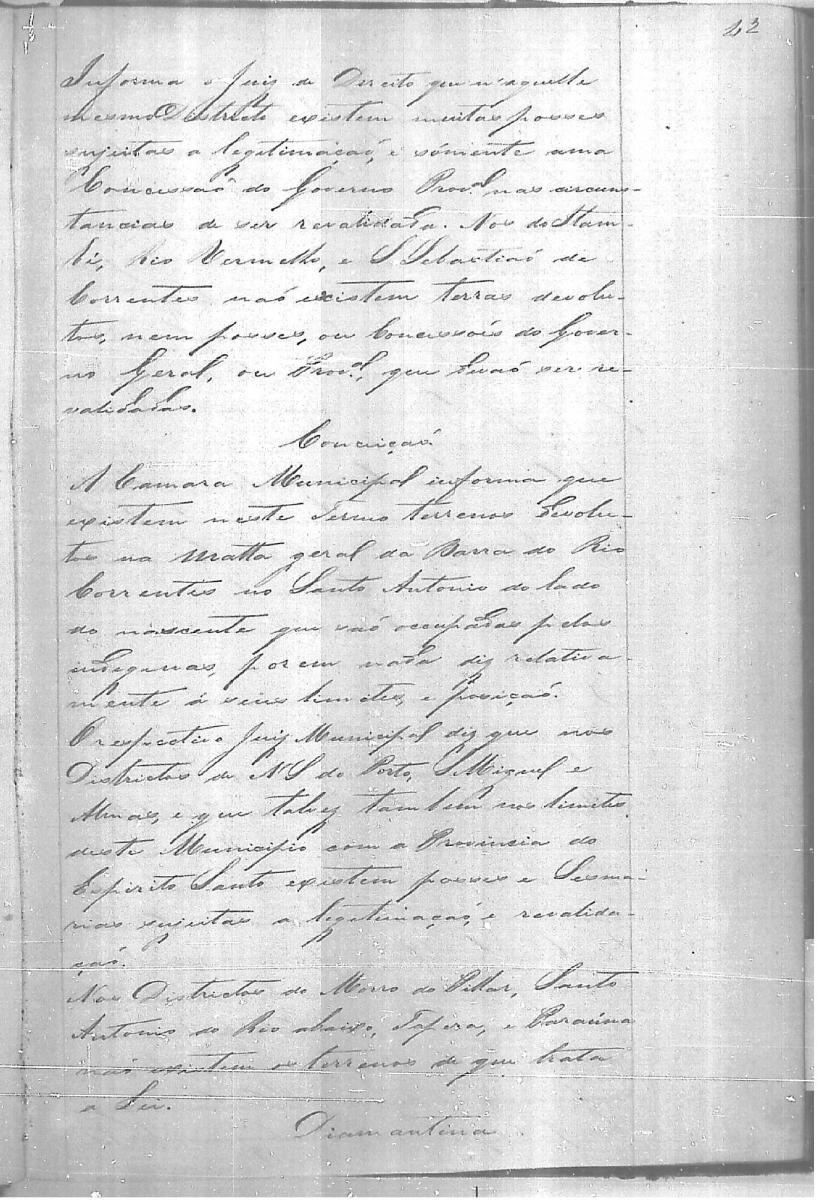 23
Informa o Juiz de Direito que n'aquelle
mesmo Districto existem muitas posses
sujeitas a legitimação, e sómente uma
Concessaõ do Governo Prov.al nas circuns-
tancias de ser revalidada. Nos do Itam-
bé, Rio Vermelho, e S Sebastiaõ de
Correntes naõ existem terras devolu-
tas, nem posses, ou Concessoẽs do Gover-
no Geral, ou Prov.al, que devaõ ser re-
validadas.
Conceiçaõ
A Camara Municipal informa que
existem neste Termo terrenos devolu-
tos na Matta geral da Barra do Rio
Correntes no Santo Antonio do lado
do nascente que saõ occupadas pelos
indigenas, porem nada diz relativa-
mente á seus limites, e posiçaõ.
O respectivo Juiz Municipal diz que nos
Districtos de N S do Porto, S Miguel e
Almas, e que talvez tambem nos limites
deste Municipio com a Provincia do
Espirito Santo existem posses e Sesma-
rias sujeitas a legitimaçaõ, e revalida-
çaõ.
Nos Districtos do Morro do Pillar, Santo
Antonio do Rio abaixo, Tapera, e Paraúna
naõ existem os terrenos de que trata
a Lei.
Diamantina